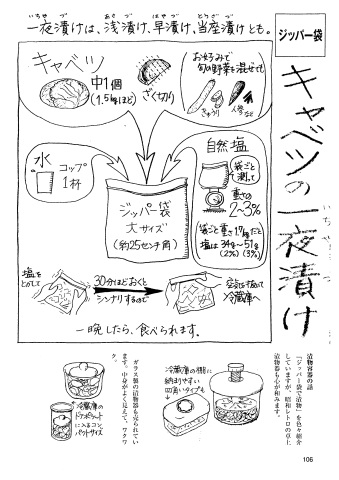 ジッパー袋
キャベツの一夜漬け
いちやづ
一夜漬けは、浅漬け、早漬け、当座漬けとも。
いちや づ
あさ づ
はや づ
とうざ づ
キャベツ
中1個
(1.5kgほど)
ざく切り
お好みで
旬の野菜を混ぜても
きゅうり
人参など
水
コップ
1杯
自然塩
袋ごと
測って
重さの
2~3%
ジッパー袋
大サイズ
(約25センチ角)
(袋ごと重さ1.7kgだと
塩は34g~51g
(2%) (3%)
塩を
とかして
30分ほどおくと
シンナリするので
空気を抜いて
冷蔵庫へ
一晩したら、食べられます。
漬物容器の話
「ジッパー袋で漬物」を色々紹介
していますが、昭和レトロの卓上
漬物器も心が和みます。
冷蔵庫の棚に
納まりやすい
四角いタイプも
ガラス製の漬物器も売られてい
ます。中身がよく見えて、ワクワ
ク。
冷蔵庫の
ドアポケット
に入るコン
パクトサイズ
106